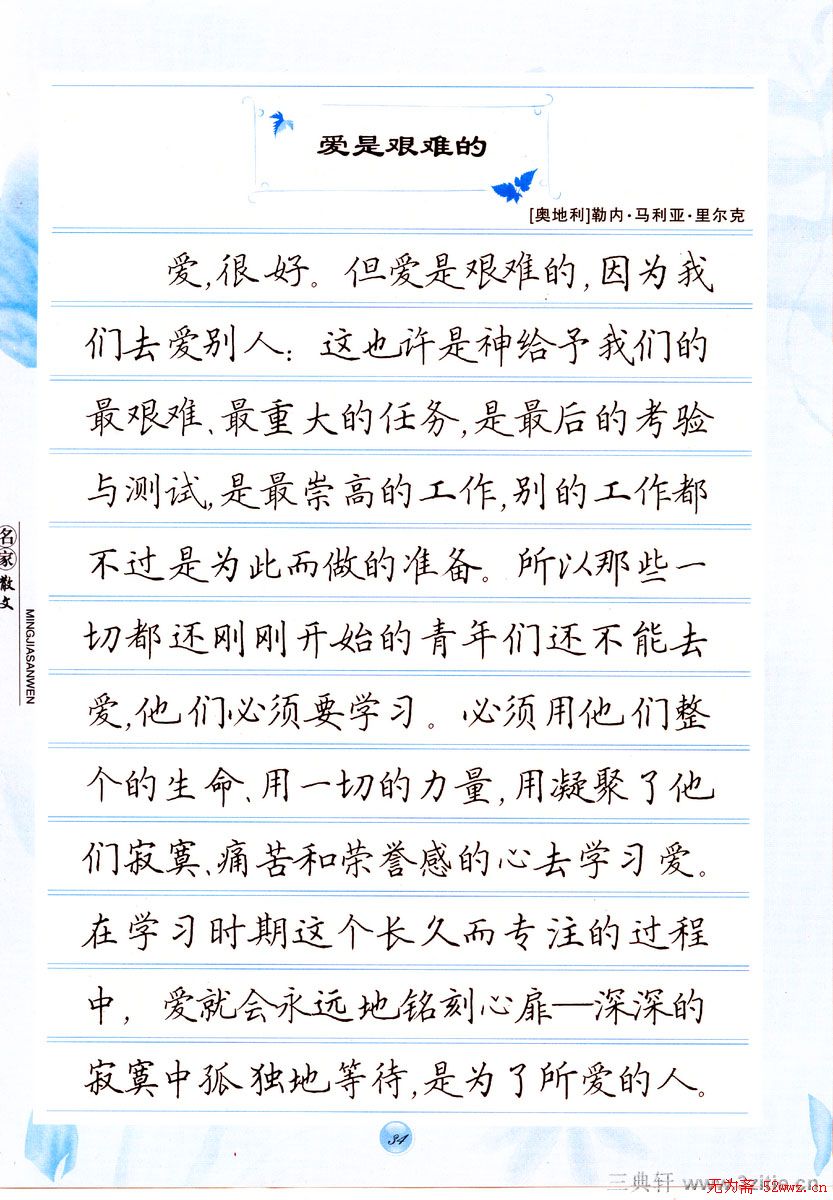 爱是艰难的
[奥地利]勒内·马利亚·里尔克
爱,很好。但爱是艰难的,因为我
们去爱别人：这也许是神给予我们的
最艰难、最重大的任务,是最后的考验
与测试,是最崇高的工作,别的工作都
不过是为此而做的准备。所以那些一
切都还刚刚开始的青年们还不能去
爱,他们必须要学习。必须用他们整
个的生命、用一切的力量,用凝聚了他
们寂寞、痛苦和荣誉感的心去学习爱。
在学习时期这个长久而专注的过程
中，爱就会永远地铭刻心扉—深深的
寂寞中孤独地等待,是为了所爱的人。
名家散文
MINGJIASANWEN
34
无为斋·52wwz.cn